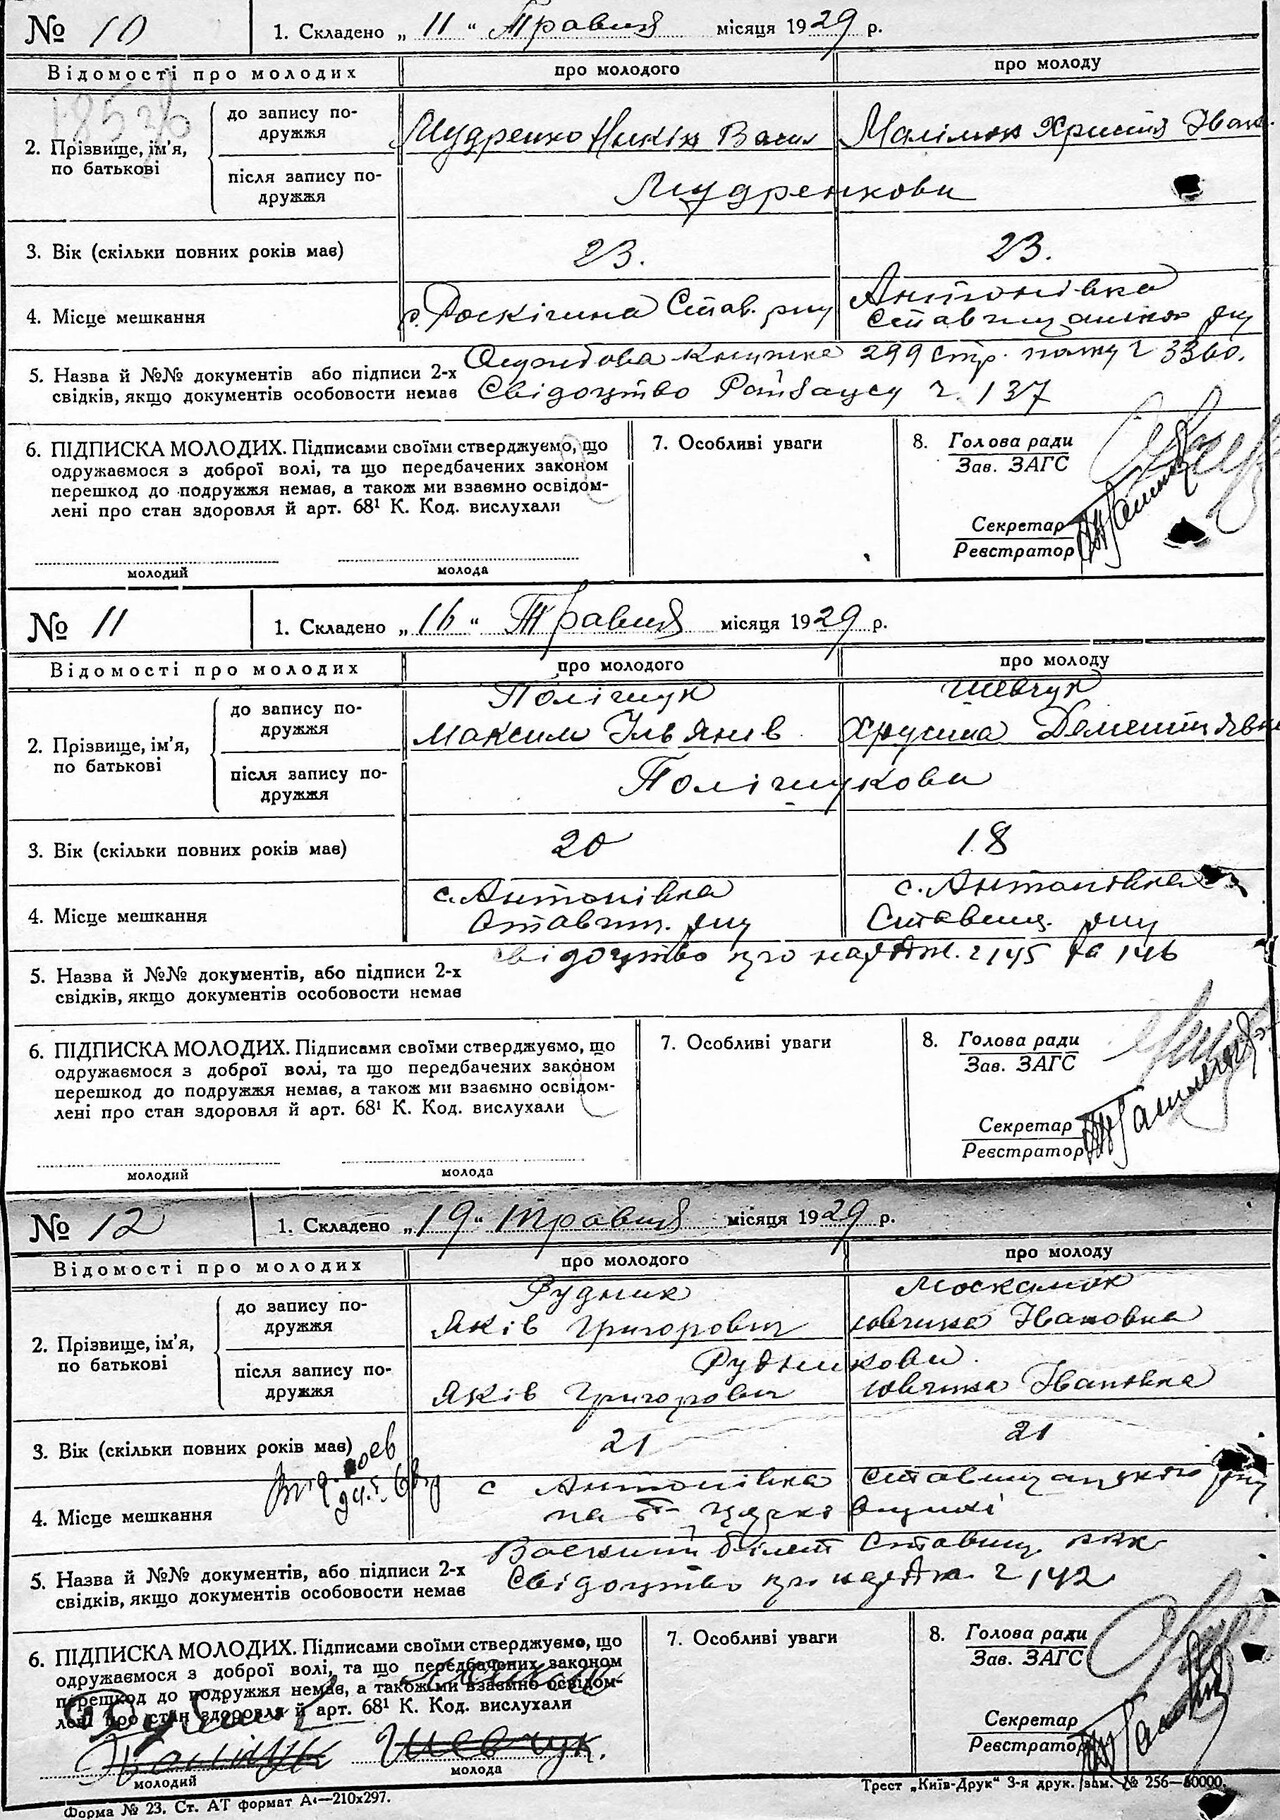 № 10 1. Складено „ 11 “ Травня місяця 1929 р.
Відомості про молодих про молодого про молоду
2. Прізвище, ім'я, по батькові
до запису по-
дружжя
Мудренко Никін Васил
Малімон Христя Іван.
після запису по-
дружжя
Мудренкови
3. Вік (скільки повних років має) 23. 23.
4. Місце мешкання
с. Розкішна Став. р-ну
Антонівка
Ставищанськ р-ну
5. Назва й №№ документів або підписи 2-х
свідків, якщо документів особовости немає
Службова книжка 299 стр. полку ч 3360.
Свідоцтво Райбацсу ч. 137
6. ПІДПИСКА МОЛОДИХ. Підписами своїми стверджуємо, що
одружаємося з доброї волі, та що передбачених законом
перешкод до подружжя немає, а також ми взаємно освідом-
лені про стан здоровля й арт. 68¹ К. Код. вислухали
молодий молода
7. Особливі уваги
8. Голова ради
Зав. ЗАГС
Секретар
Реєстратор
№ 11 1. Складено „ 16 “ Травня місяця 1929 р.
Відомості про молодих про молодого про молоду
2. Прізвище, ім'я,
по батькові
до запису по-
дружжя
Поліщук
Максим Ільянів
Шевчук
Хрусина Дементіївна
після запису по-
дружжя
Поліщукови
3. Вік (скільки повних років має) 20 18
4. Місце мешкання
с. Антонівка
Ставищ. р-ну
с. Антонівка
Ставищ. р-ну
5. Назва й №№ документів, або підписи 2-х
свідків, якщо документів особовости немає
Свідоцтво про народж. ч 145 та 146
6. ПІДПИСКА МОЛОДИХ. Підписами своїми стверджуємо, що
одружаємося з доброї волі, та що передбачених законом
перешкод до подружжя немає, а також ми взаємно освідом-
лені про стан здоровля й арт. 68¹ К. Код. вислухали
молодий молода
7. Особливі уваги
8. Голова ради
Зав. ЗАГС
Секретар
Реєстратор
№ 12 1. Складено „ 19 “ Травня місяця 1929 р.
Відомості про молодих про молодого про молоду
2. Прізвище, ім'я,
по батькові
до запису по-
дружжя
Рудник
Яків Григорович
Москалюк
Івановна
після запису по-
дружжя
Рудникови
Яків Григорович
Івановна
3. Вік (скільки повних років має) 21 21
4. Місце мешкання
с Антонівка Ставищанського р-ну
на
5. Назва й №№ документів, або підписи 2-х
свідків, якщо документів особовости немає
Воєнний білет Ставищ.
Свідоцтво про народж. ч 142
6. ПІДПИСКА МОЛОДИХ. Підписами своїми стверджуємо, що
одружаємося з доброї волі, та що передбачених законом
перешкод до подружжя немає, а також ми взаємно освідом-
лені про стан здоровля й арт. 68¹ К. Код. вислухали
Шевчук.
молодий молода
7. Особливі уваги
8. Голова ради
Зав. ЗАГС
Секретар
Реєстратор
Форма № 23. Ст. АТ формат А₄—210х297.
Трест „Київ-Друк“ 3-я друк. /зам. № 256—50000.